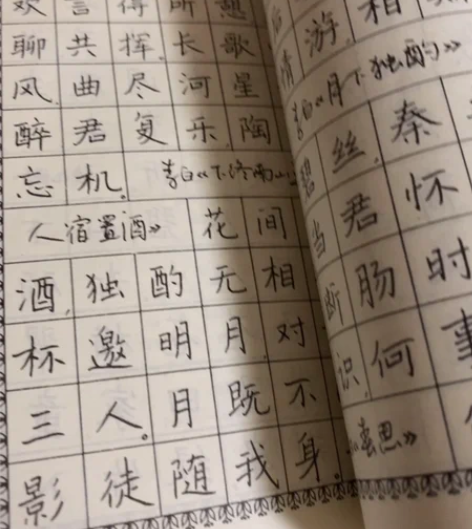 欢言得所憩
聊共挥长歌
风。曲尽河星
醉君复乐陶
忘机。李白《下终南山
人宿置酒》花间
酒,独酌无相
杯邀明月,对
三人。月既不
影徒随我身。
游。相
情
李白《月下独酌》
碧丝,秦
当君怀
断肠时
识,何事
春思》